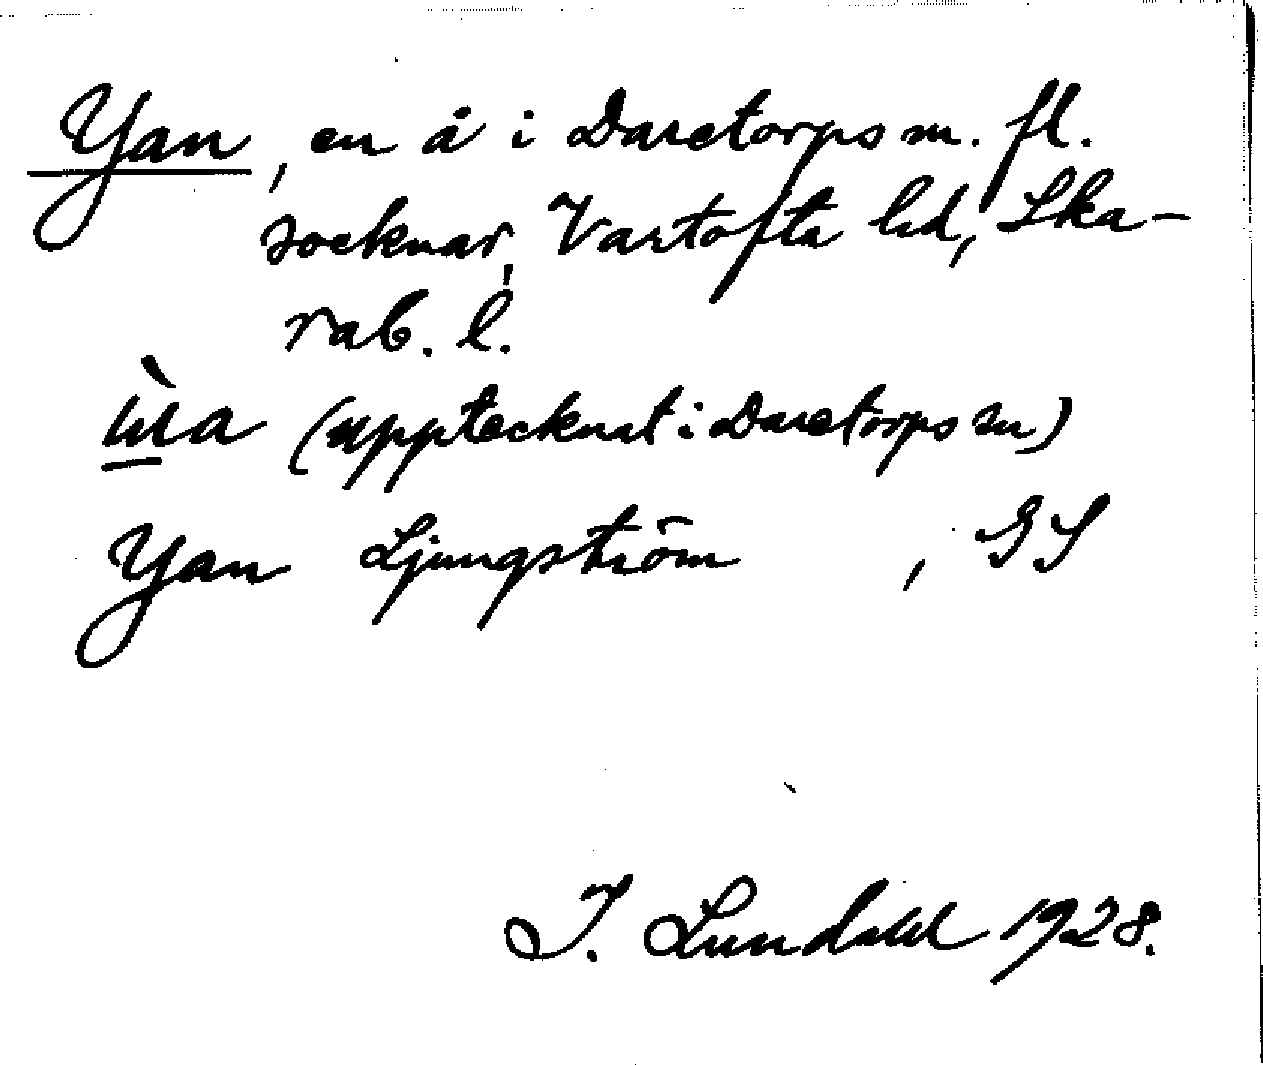 Yan, en å i Daretorps m. fl.
socknar, Vartofta hd, Ska-
rab. l.
(upptecknat i Daretorps sn)
Yan Ljungström, GS
I. Lundahl 1928.